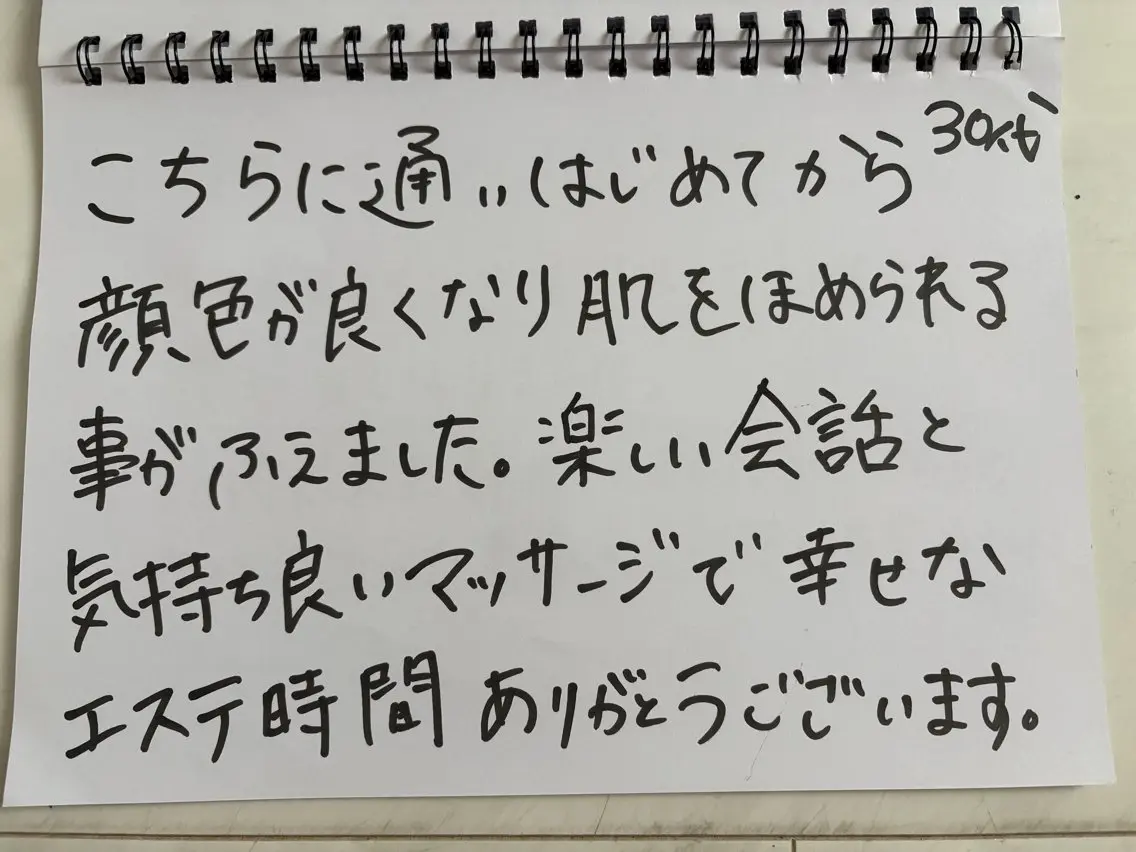 30代
こちらに通いはじめてから
顔色が良くなり肌をほめられる
事がふえました。楽しい会話と
気持ち良いマッサージで幸せな
エステ時間 ありがとうございます。